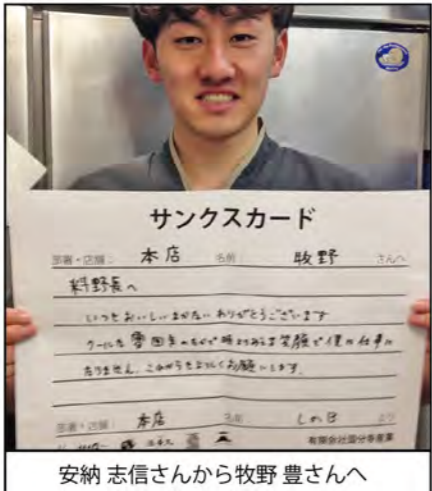 サンクスカード
部署・店舗： 本店 名前： 牧野 さんへ
料野長へ
いつもおいしいまかないありがとうございます
クールな雰囲気のなかで時よりみる笑顔で僕は仕事に
なりません。これからもよろしくお願いします。
部署・店舗： 本店 名前： しのび より
有限会社国分寺産業
安納 志信さんから牧野 豊さんへ